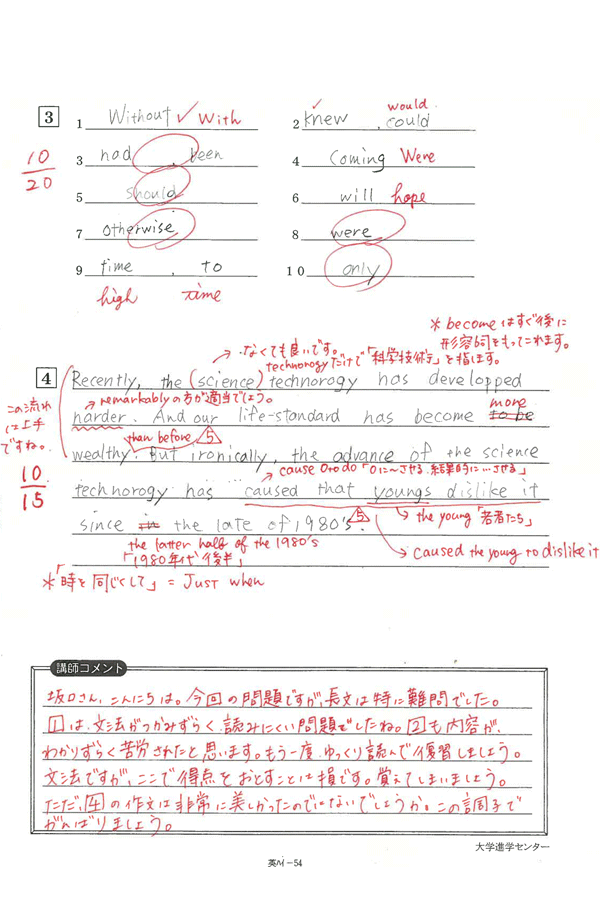 3
10
20
1 Without ✓ With
2 ✓ knew , could would
3 had , been
4 Coming Were
5 should
6 will hope
7 otherwise
8 were
9 time , to
high time
10 only
*becomeはすぐ後に
形容詞をもってこれます。
→なくても良いです。
technorogyだけで「科学技術」を指します。
4
Recently, the (science) technorogy has developped
→remarkablyの方が適当でしょう。
この流れ
は上手
ですね。
more
harder. And our life-standard has become to be
than before 5
wealthy. But ironically, the advance of the science
10
15
cause O to do「Oに〜させる、結果的に…させる」
technorogy has caused that youngs dislike it
→the young「若者たち」
since in the late of 1980's. 5
the latter half of the 1980's
「1980年代後半」
→caused the young to dislike it
*「時を同じくして」= Just when
講師コメント
坂口さん、こんにちは。今回の問題ですが、長文は特に難問でした。
1は、文法がつかみずらく、読みにくい問題でしたね。2も内容が、
わかりずらく苦労されたと思います。もう一度、ゆっくり読んで復習しましょう。
文法ですが、ここで得点をおとすことは損です。覚えてしまいましょう。
ただ、4の作文は非常に美しかったのではないでしょうか。この調子で
がんばりましょう。
大学進学センター
英M-54